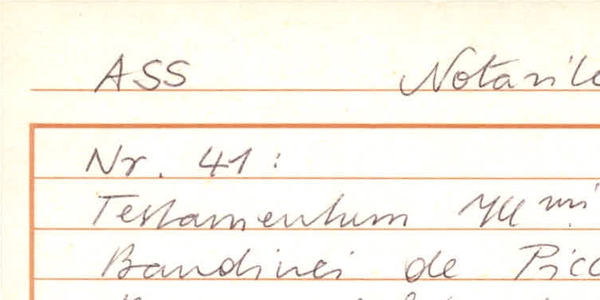 ASS Notarile
Nr. 41:
Testamentum Ill mi
Bandinei de Picc